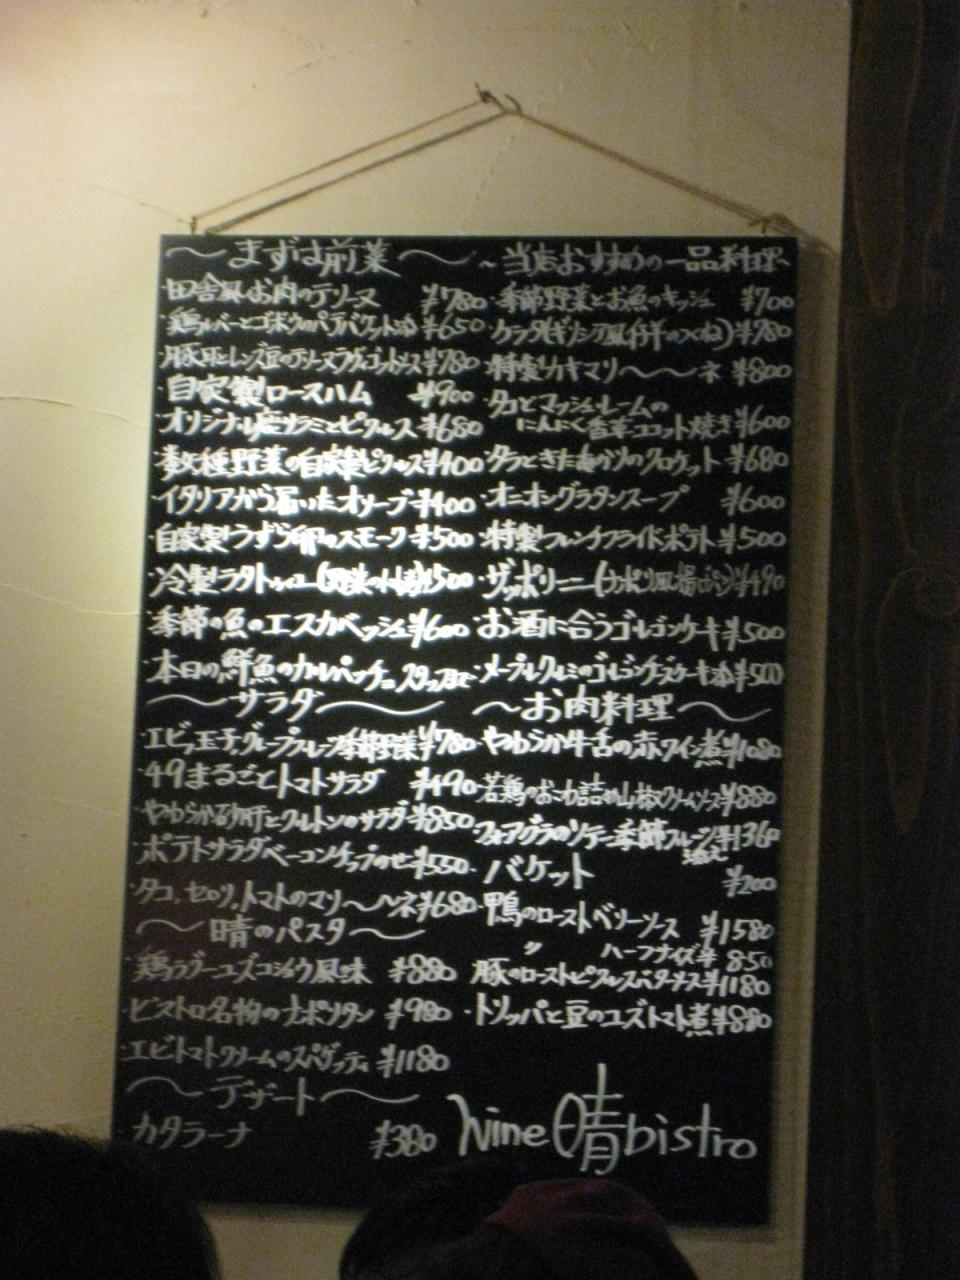 〜まずは前菜〜
田舎風お肉のテリーヌ ¥780
・鶏レバーとゴボウのパテバケット添 ¥650
・豚耳とレンズ豆のテリーヌラヴィゴットソース¥780
自家製ロースハム ¥900
オリジナル サラミとピクルス ¥680
・数種野菜の自家製ピクルス¥400
・イタリアから届いたオリーブ ¥400
・自家製うずら卵のスモーク ¥500
・冷製ラタトゥイユ(野菜の )¥500
・季節の魚のエスカベッシュ¥600
・本日の鮮魚のカルパッチョ スタッフまで
〜サラダ〜
・エビ、玉子、グレープフルーツ季節野菜¥780
・49まるごとトマトサラダ ¥490
・やわらか砂肝とクルトンのサラダ ¥850
・ポテトサラダベーコンチップのせ ¥550
・タコ、セロリ、トマトのマリ〜〜ネ ¥680
〜晴のパスタ〜
・鶏ラグーユズコショウ風味 ¥880
・ビストロ名物のナポリタン ¥980
・エビトマトクリームのスパゲッティ ¥1180
〜デザート〜
カタラーナ ¥380
〜当店おすすめの一品料理〜
・季節野菜とお魚のキッシュ ¥700
・ケフタ(ギリシア風仔羊のつくね)¥780
・特製リカキマリ〜〜〜ネ ¥800
・タコとマッシュルームの
にんにく香草ココット焼き ¥600
・タラときたあかりのクロケット ¥680
・オニオングラタンスープ ¥600
・特製フレンチフライドポテト ¥500
・ザッポリーニ(ナポリ風揚げパン)¥490
・お酒に合うゴルゴンケーキ ¥500
・メープルクルミのゴルゴンチーズケーキ ¥500
〜お肉料理〜
・やわらか牛舌の赤ワイン煮 ¥1080
・若鶏のおこわ詰め山椒クリームソース¥880
・フォアグラのソテー季節フルーツ添え ¥1360
・バケット ¥200
・鴨のローストベリーソース ¥1580
〃 ハーフサイズ ¥850
・豚のローストピクルスバターソース ¥1180
・トリッパと豆のユズトマト煮 ¥880
Wine 晴 bistro